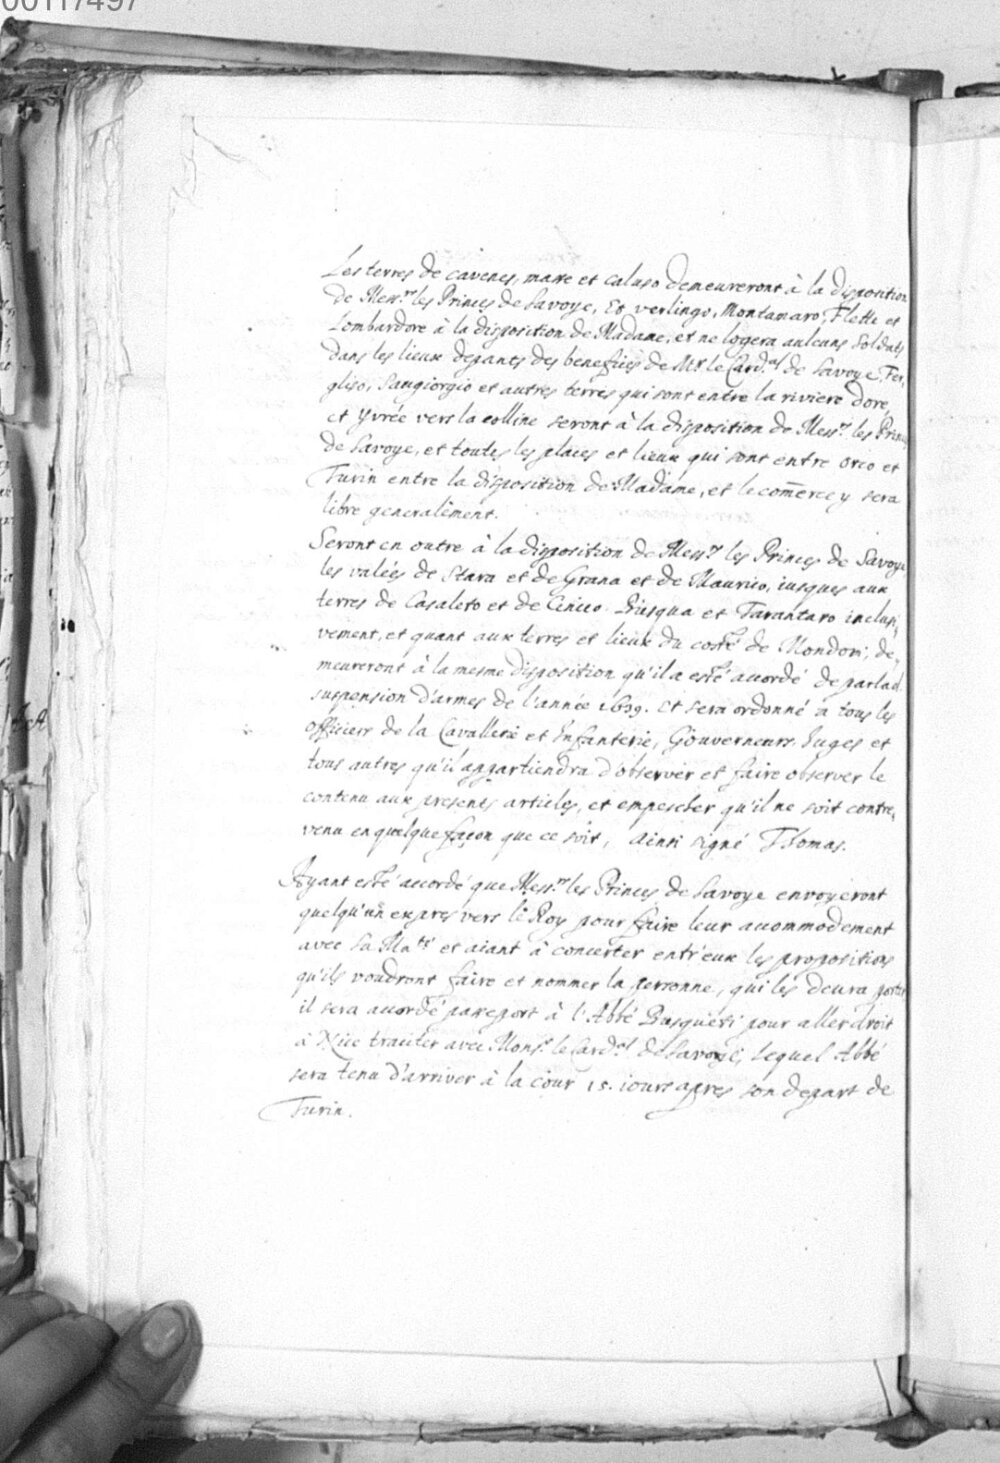 00117497
Les terres de Cavenes, masse et Caluso demeureront à la disposition
de Mess.rs les Princes de Savoye, Et verlingo, Montamaro, Flette et
Lombardore à la disposition de Madame, et ne logera aulcuns soldats
dans les lieux depants des benefices de Mr. le Card.al de Savoye. Fer,
gliso, Sangiorgio et autres terres qui sont entre la riviere dore,
et Yvrée vers la colline seront à la disposition de Mess.rs les Princes
de Savoye, et toutes les places et lieux qui sont entre Orco et
Turin entre la disposition de Madame, et le comerce y sera
libre generalement.
Seront en outre à la disposition de Mess.rs les Princes de Savoye
les valées de Stara et de Grana et de Maurico, iusques aux
terres de Casaleto et de Cinico. Busqua et Tarantaro inclusi,
vement, et quant aux terres et lieux du costé de Mondovi, de,
meureront à la mesme disposition qu'il a esté accordé de par la d.
suspension d'armes de l'année 1639. et sera ordonné à tous les
officiers de la Cavallerie et Infanterie, Gouverneurs, Iuges et
tous autres qu'il appartiendra d'observer et faire observer le
contenu aux presents articles, et empescher qu'il ne soit contre,
venu en quelque façon que ce soit, ainsi signé Thomas.
Ayant esté accordé que Mess.rs les Princes de Savoye envoyeront
quelqu'un expres vers le Roy pour faire leur accommodement
avec Sa Ma.té et aiant à concerter entr'eux les propositions
qu'ils voudront faire et nommer la personne, qui les devra porter
il sera accordé passeport à l'Abbé Busquèti pour aller droit
à Nice traitter avec Mons.r le Card.al de Savoye, lequel Abbé
sera tenu d'arriver à la cour 15. iours apres son depart de
Turin.